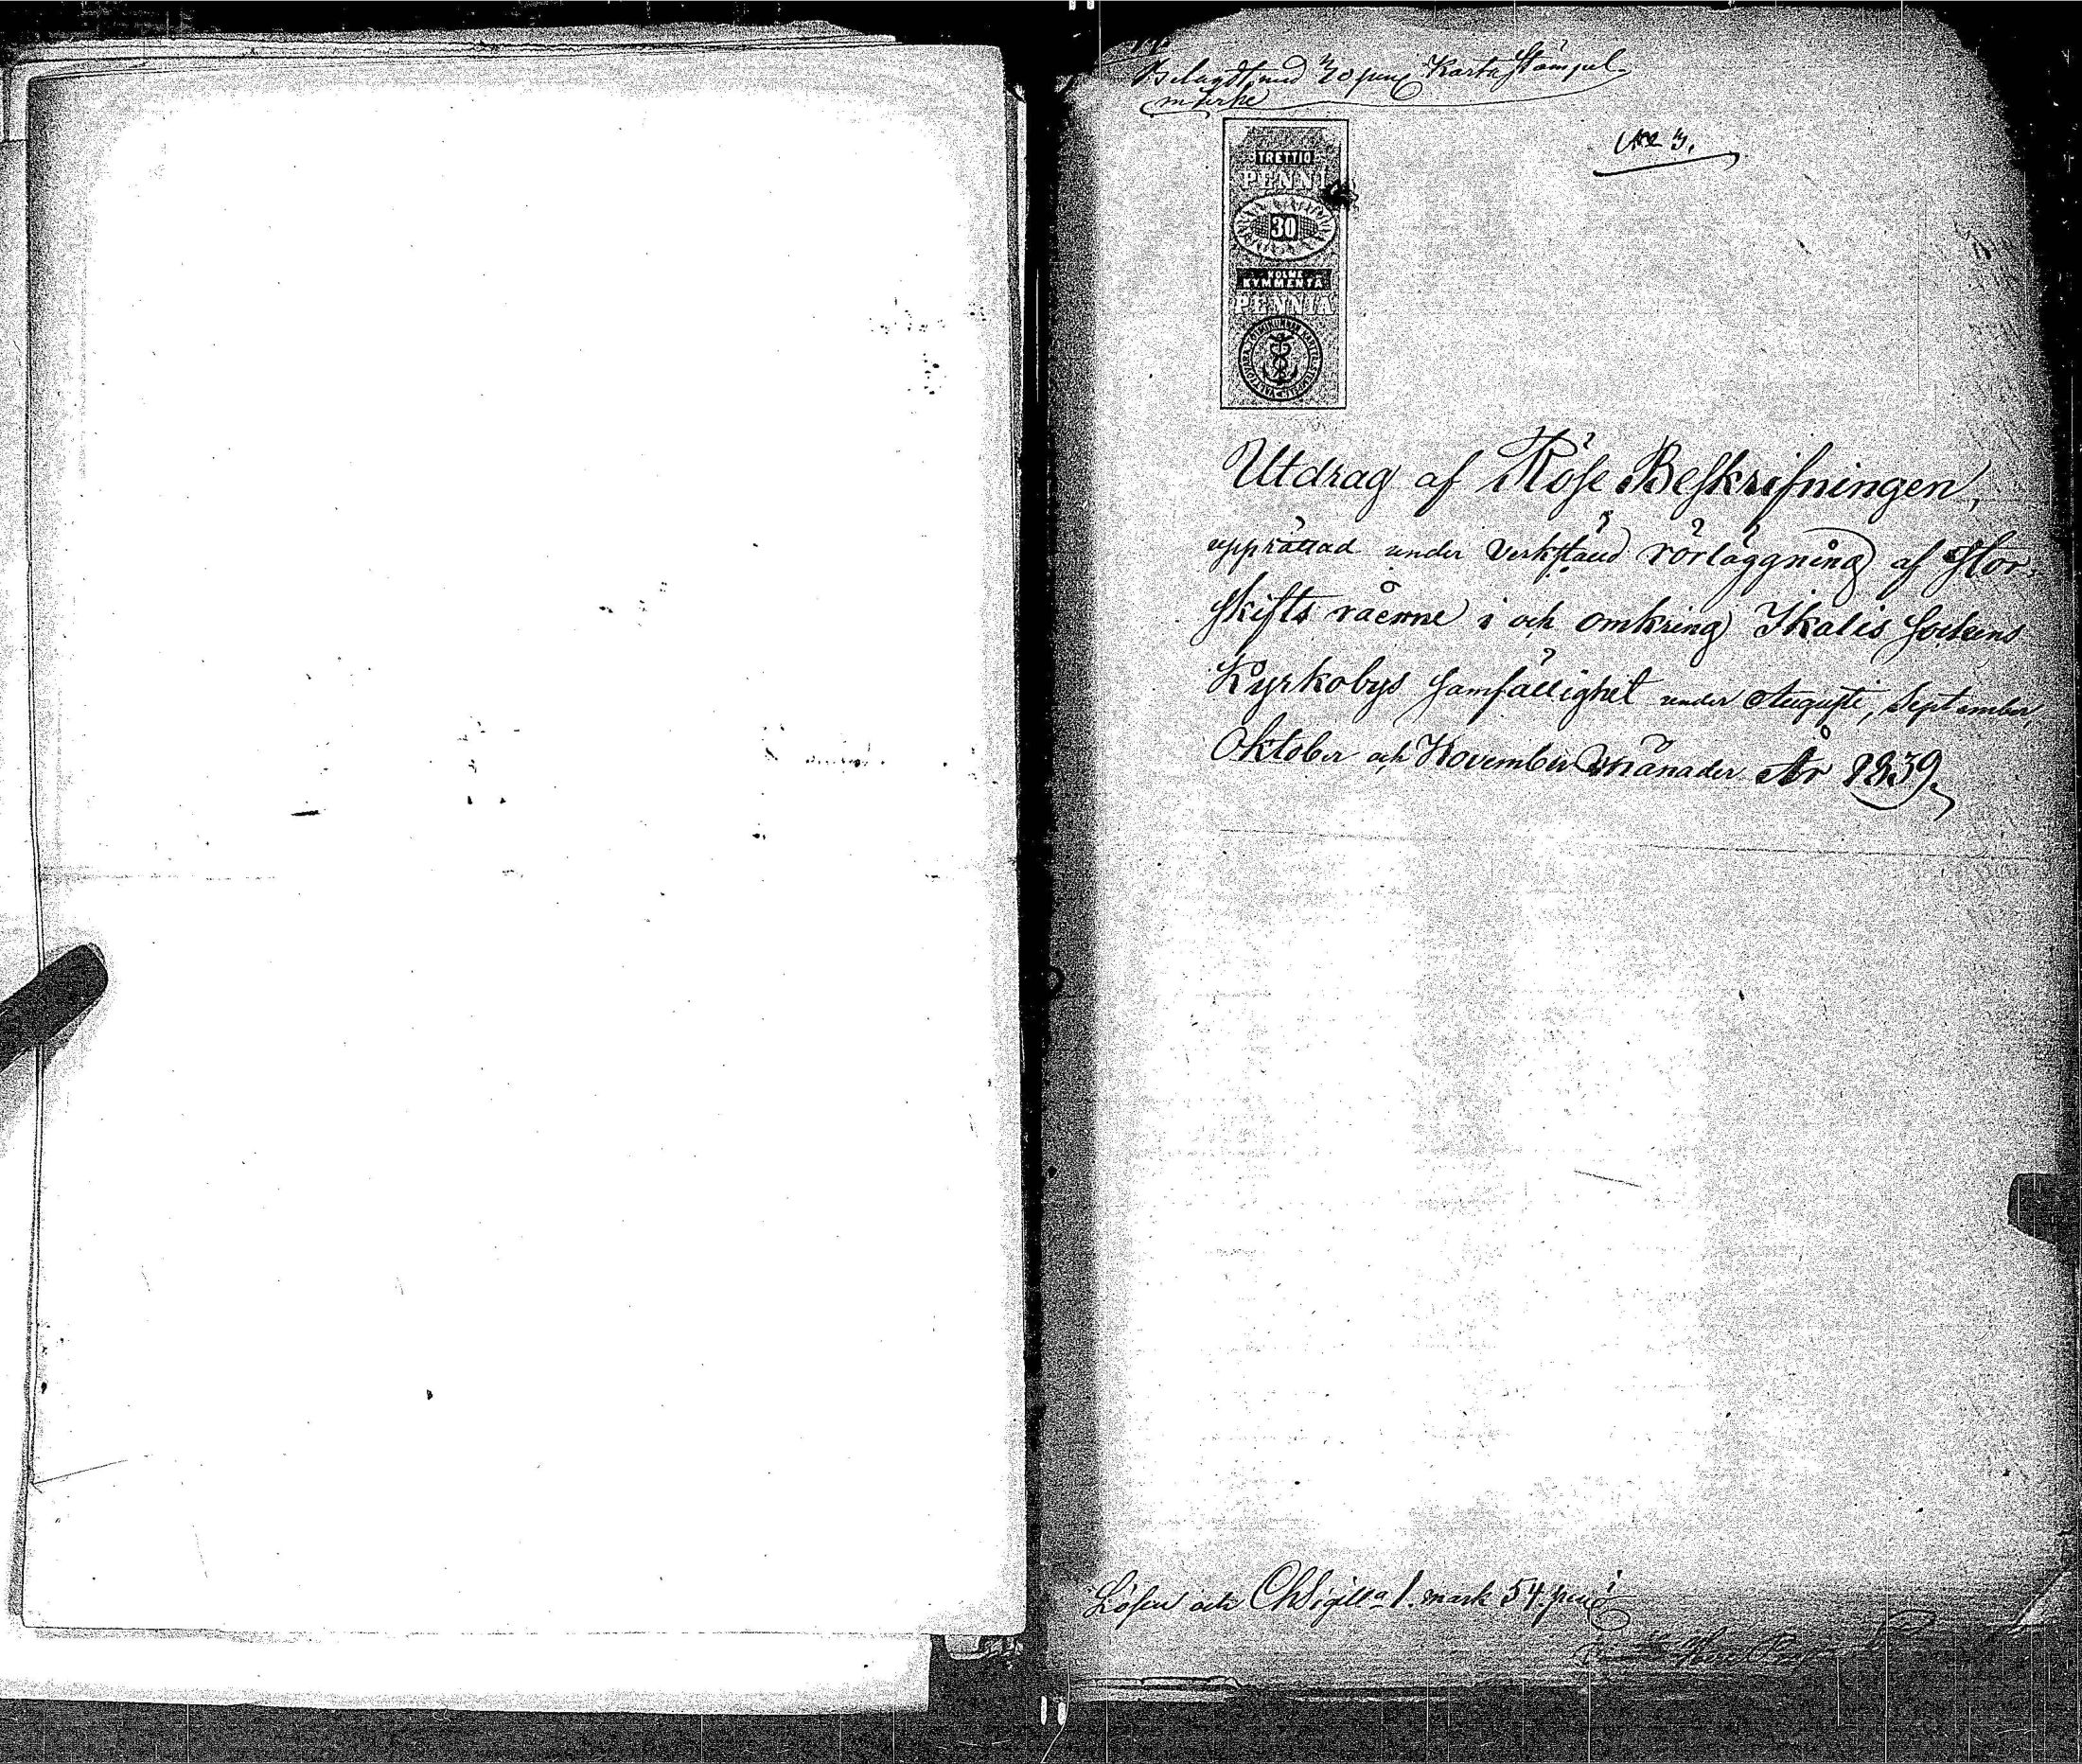 Belagdt med 30 penni Karta Stämpel
märke
TRETTIO
PENNI
30
KOLME
KYMMENTÄ
PENNIÄ
Utdrag af Röse Beskrifningen,
upprättad under verkstäld rörläggning af Stor-
skifts råerne i och omkring Ikalis Sockens
Kyrkobys samfällighet under Augusti, September,
Oktober och November månader År 1839.
Lösen och 1. mark 54. penni